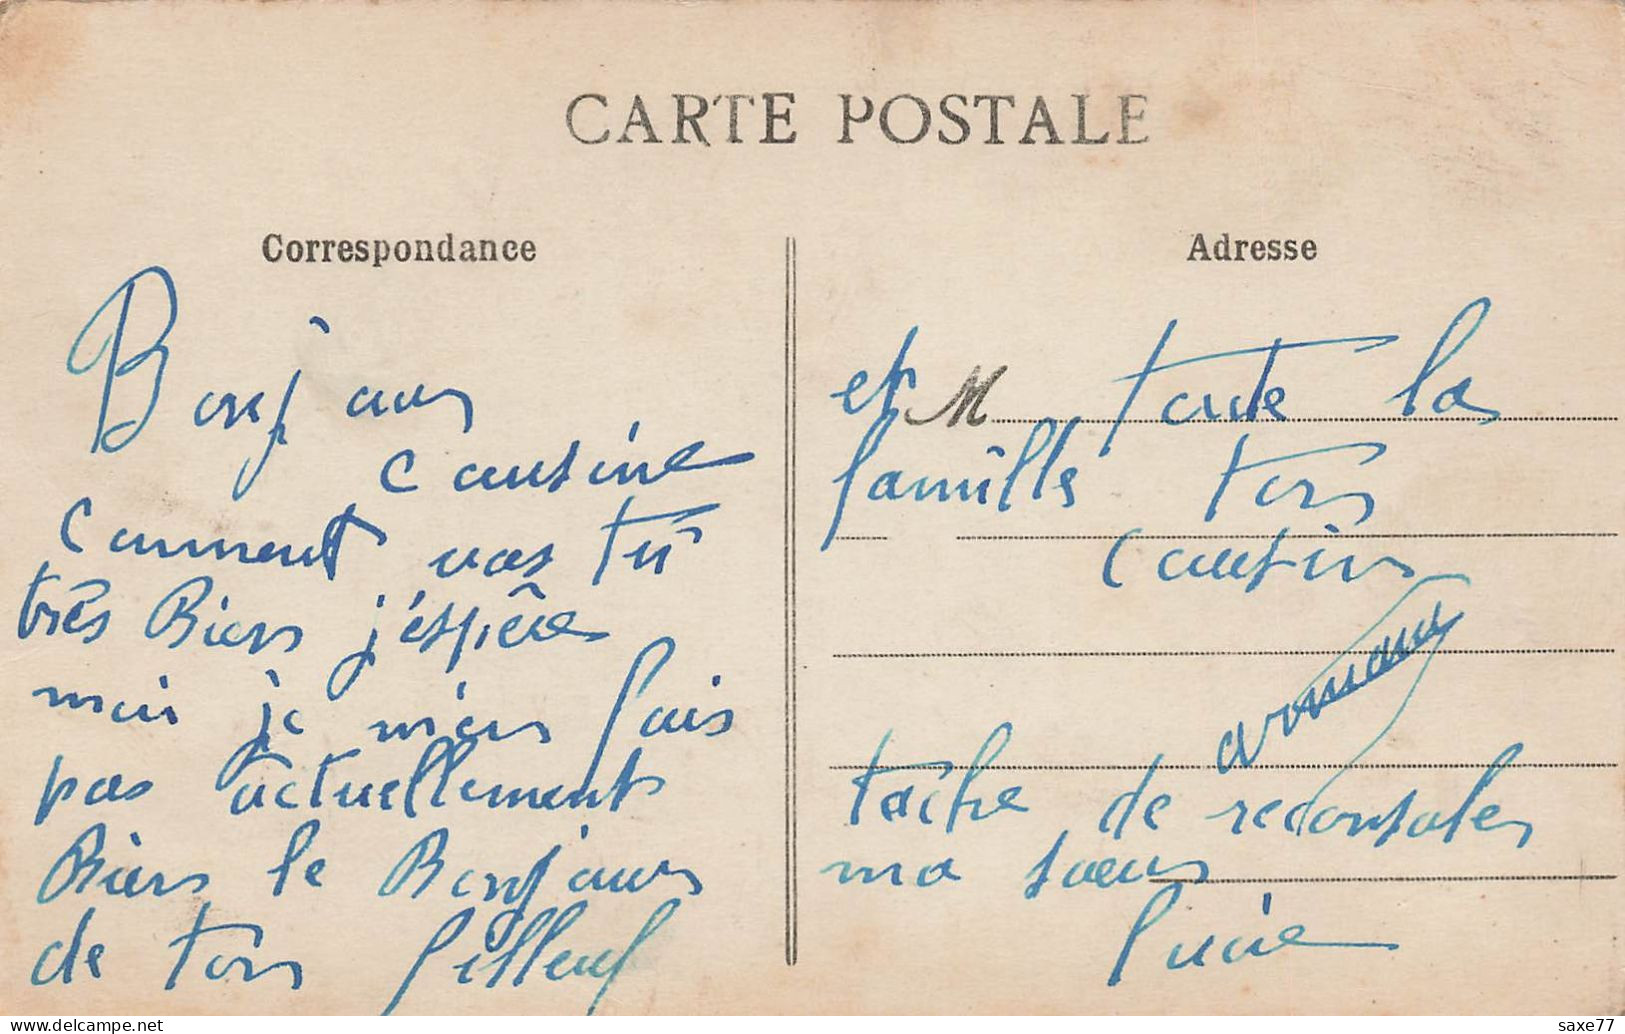 CARTE POSTALE
Correspondance
Bonjour
cousine
comment vas tu
très Bien j'éspêre
moi je n'en fais
pas actuellement
Bien le Bonjour
de ton filleul
Adresse
et M toute la
famille ton
cousin
armany
tache de reconsoler
ma sœur
lucie
delcampe.net
saxe77